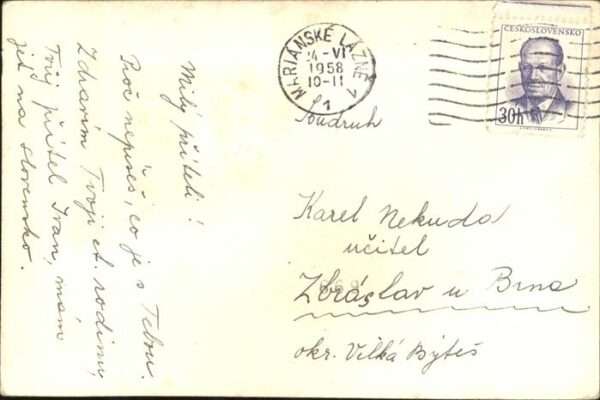 Milý příteli!
Proč nepíšeš, co je s Tebou.
Zdravím Tvoji ct. rodinu,
Tvůj přítel Ivan, mám
jet na Slovensko.
MARIÁNSKÉ LÁZNĚ 1
24-VI
1958
10-11
1
ČESKOSLOVENSKO
30h
Soudruh
Karel Nekuda
učitel
Zbráslav u Brna
okr. Velká Býteš